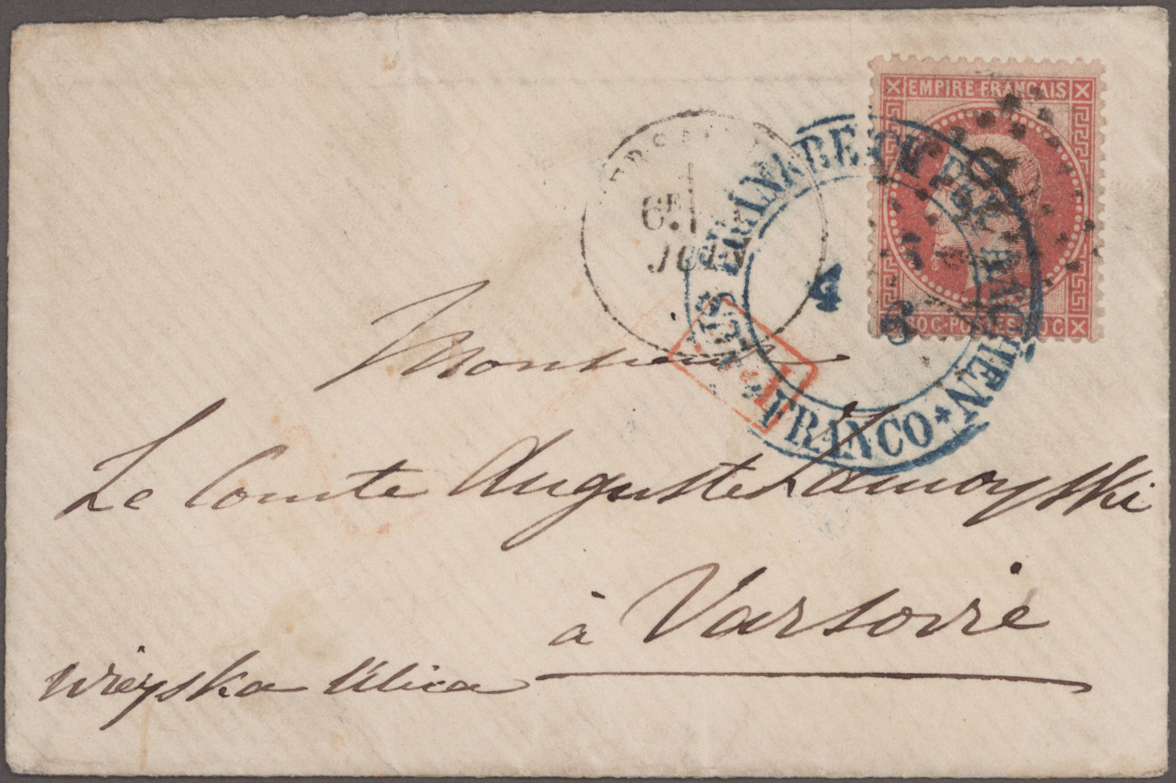 EMPIRE FRANÇAIS
80 C · POSTES · 80 C
6E
4
6
FRANCO
P.D.
Monsieur
Le Comte Auguste Zamoyski
à Varsovie
Wieyska Ulica